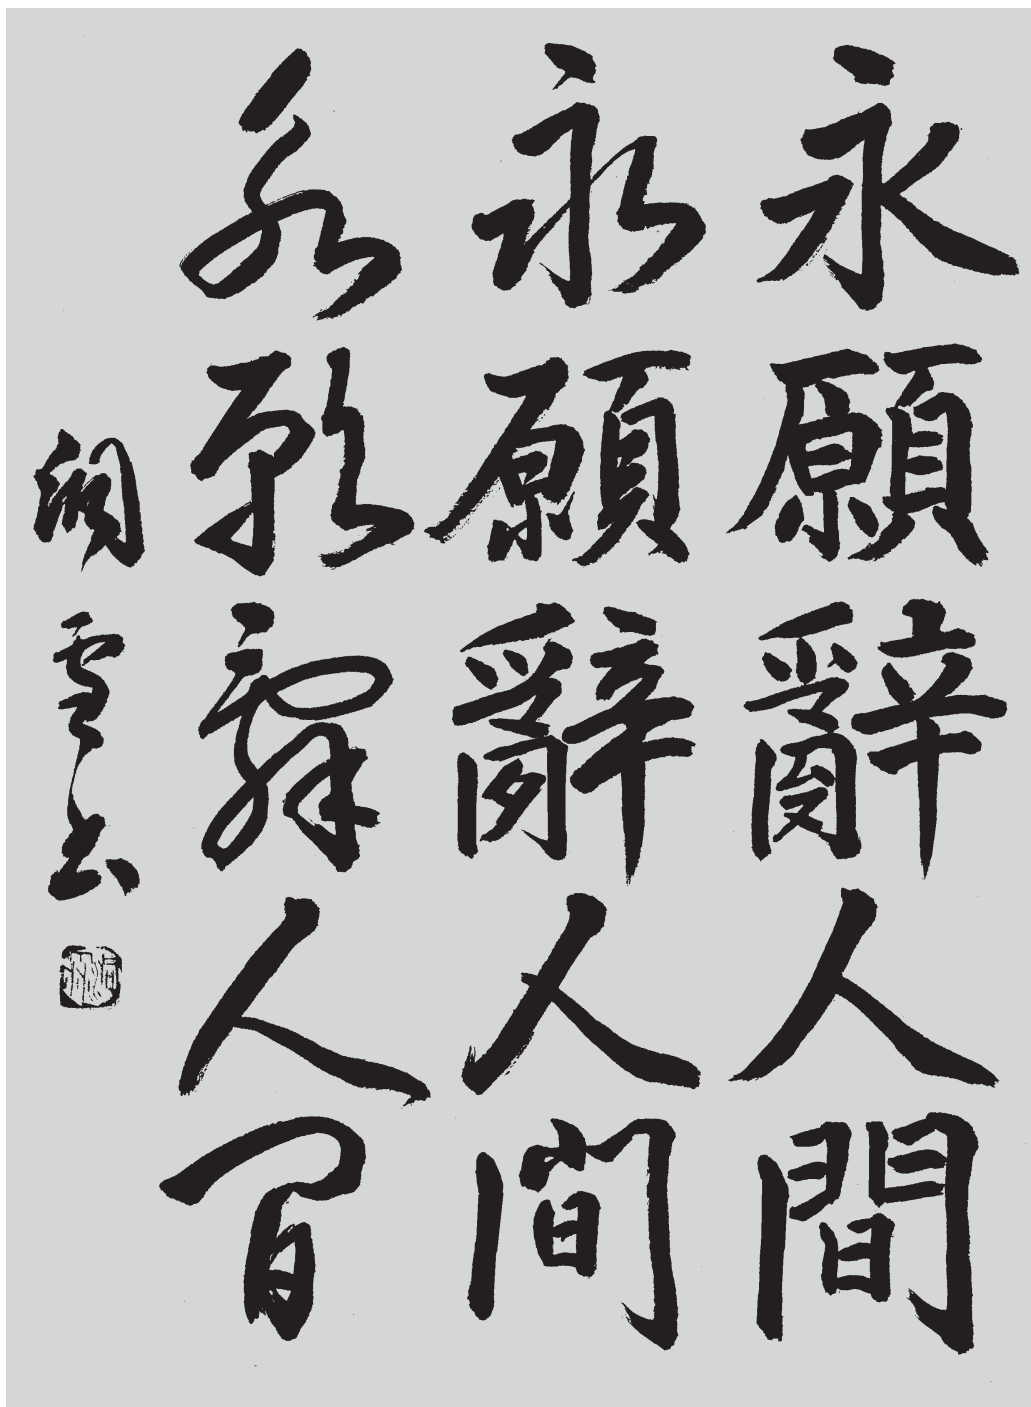 永願辭人間
永願辭人間
永願辭人間
雪書